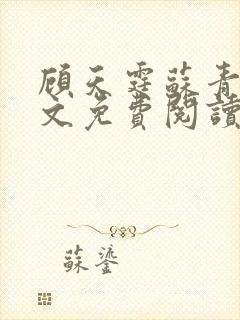 顾天霆蘇青
文免費閱讀
蘇鎏